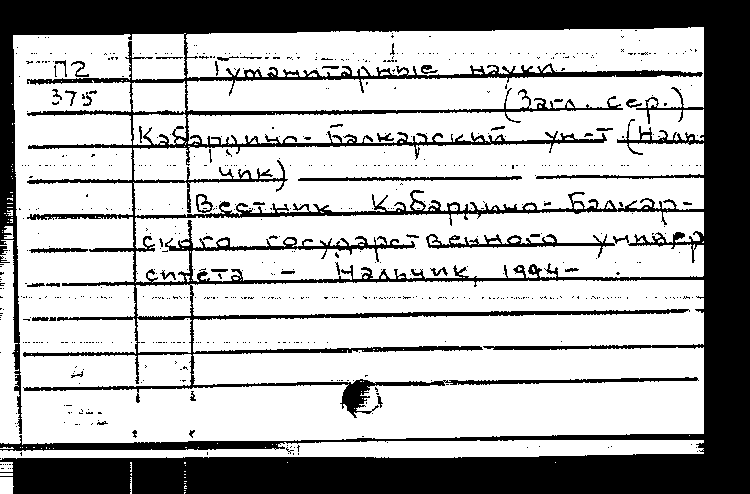 П2 Гуманитарные науки.
375 (Загл. сер.)
Кабардино-Балкарский ун-т (Наль-
чик)
Вестник Кабардино-Балкар-
ского государственного универ
ситета - Нальчик, 1994-